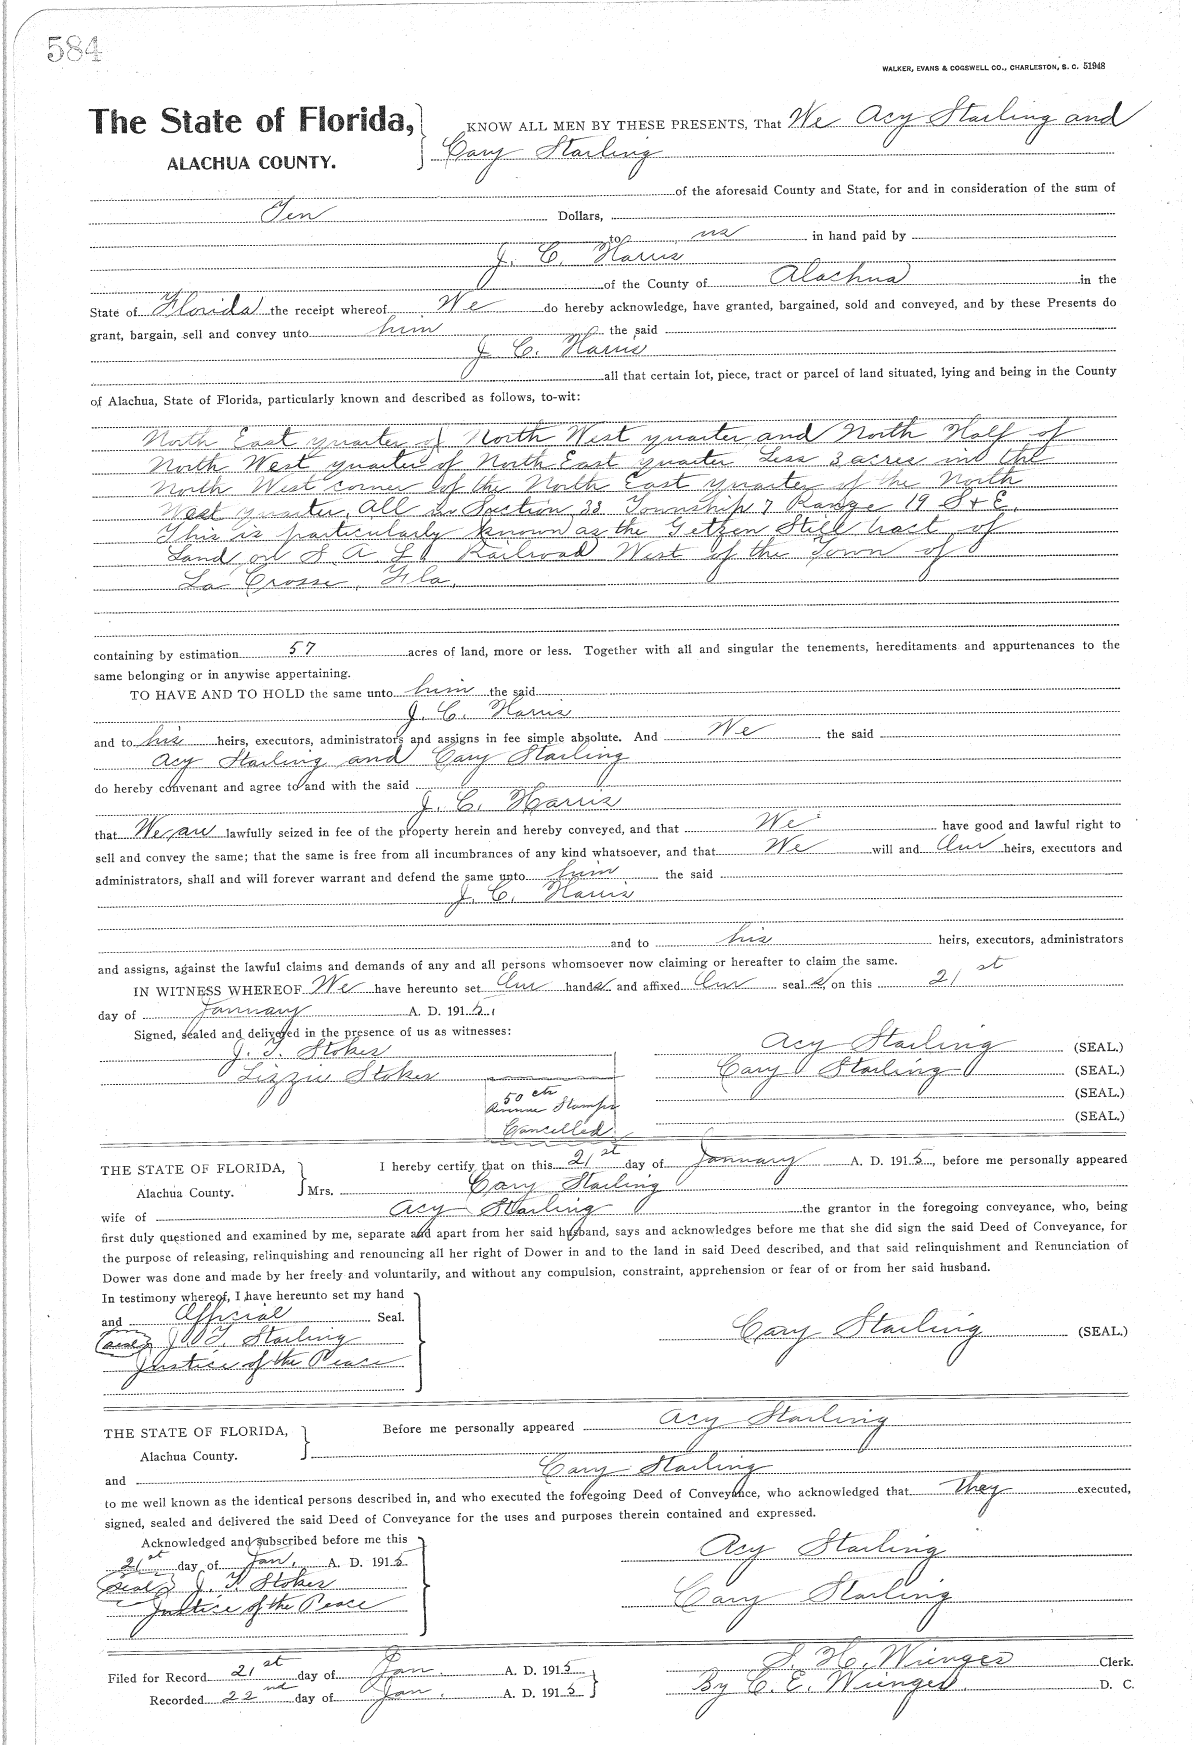 584
WALKER, EVANS & COGSWELL CO., CHARLESTON, S. C. 51948
The State of Florida,
ALACHUA COUNTY.
KNOW ALL MEN BY THESE PRESENTS, That We Acy Starling and
Cary Starling
of the aforesaid County and State, for and in consideration of the sum of
Ten Dollars,
to us in hand paid by
J. C. Harris
of the County of Alachua in the
State of Florida the receipt whereof We do hereby acknowledge, have granted, bargained, sold and conveyed, and by these Presents do
grant, bargain, sell and convey unto him the said
J. C. Harris
all that certain lot, piece, tract or parcel of land situated, lying and being in the County
of Alachua, State of Florida, particularly known and described as follows, to-wit:
North East quarter of North West quarter and North Half of
North West quarter of North East quarter Less 3 acres in the
North West corner of the North East quarter of the North
West quarter, All in Section 33 Township 7 Range 19 S & E.
This is particularly known as the Getzen Still tract of
Land on S. A. L. Railroad West of the Town of
La Crosse, Fla.
containing by estimation 57 acres of land, more or less. Together with all and singular the tenements, hereditaments and appurtenances to the
same belonging or in anywise appertaining.
TO HAVE AND TO HOLD the same unto him the said
J. C. Harris
and to his heirs, executors, administrators and assigns in fee simple absolute. And We the said
Acy Starling and Cary Starling
do hereby convenant and agree to and with the said
J. C. Harris
that We are lawfully seized in fee of the property herein and hereby conveyed, and that We have good and lawful right to
sell and convey the same; that the same is free from all incumbrances of any kind whatsoever, and that We will and Our heirs, executors and
administrators, shall and will forever warrant and defend the same unto him the said
J. C. Harris
and to his heirs, executors, administrators
and assigns, against the lawful claims and demands of any and all persons whomsoever now claiming or hereafter to claim the same.
IN WITNESS WHEREOF We have hereunto set Our hands and affixed Our seal s, on this 21st
day of January A. D. 1915.
Signed, sealed and delivered in the presence of us as witnesses:
J. T. Stokes
Lizzie Stokes
Acy Starling (SEAL.)
Cary Starling (SEAL.)
(SEAL.)
(SEAL.)
50 cts
Stamps
Cancelled
THE STATE OF FLORIDA,
Alachua County.
I hereby certify that on this 21st day of January A. D. 1915, before me personally appeared
Mrs. Cary Starling
wife of Acy Starling the grantor in the foregoing conveyance, who, being
first duly questioned and examined by me, separate and apart from her said husband, says and acknowledges before me that she did sign the said Deed of Conveyance, for
the purpose of releasing, relinquishing and renouncing all her right of Dower in and to the land in said Deed described, and that said relinquishment and Renunciation of
Dower was done and made by her freely and voluntarily, and without any compulsion, constraint, apprehension or fear of or from her said husband.
In testimony whereof, I have hereunto set my hand
and Official Seal.
(seal) J. T. Starling
Justice of the Peace
Cary Starling (SEAL.)
THE STATE OF FLORIDA,
Alachua County.
Before me personally appeared Acy Starling
and Cary Starling
to me well known as the identical persons described in, and who executed the foregoing Deed of Conveyance, who acknowledged that They executed,
signed, sealed and delivered the said Deed of Conveyance for the uses and purposes therein contained and expressed.
Acknowledged and subscribed before me this
21st day of Jan. A. D. 1915.
(seal) J. T. Stokes
Justice of the Peace
Acy Starling
Cary Starling
Filed for Record 21st day of Jan. A. D. 1915
Recorded 22nd day of Jan. A. D. 1915
S. H. Wienges Clerk.
By C. E. Wienges D. C.